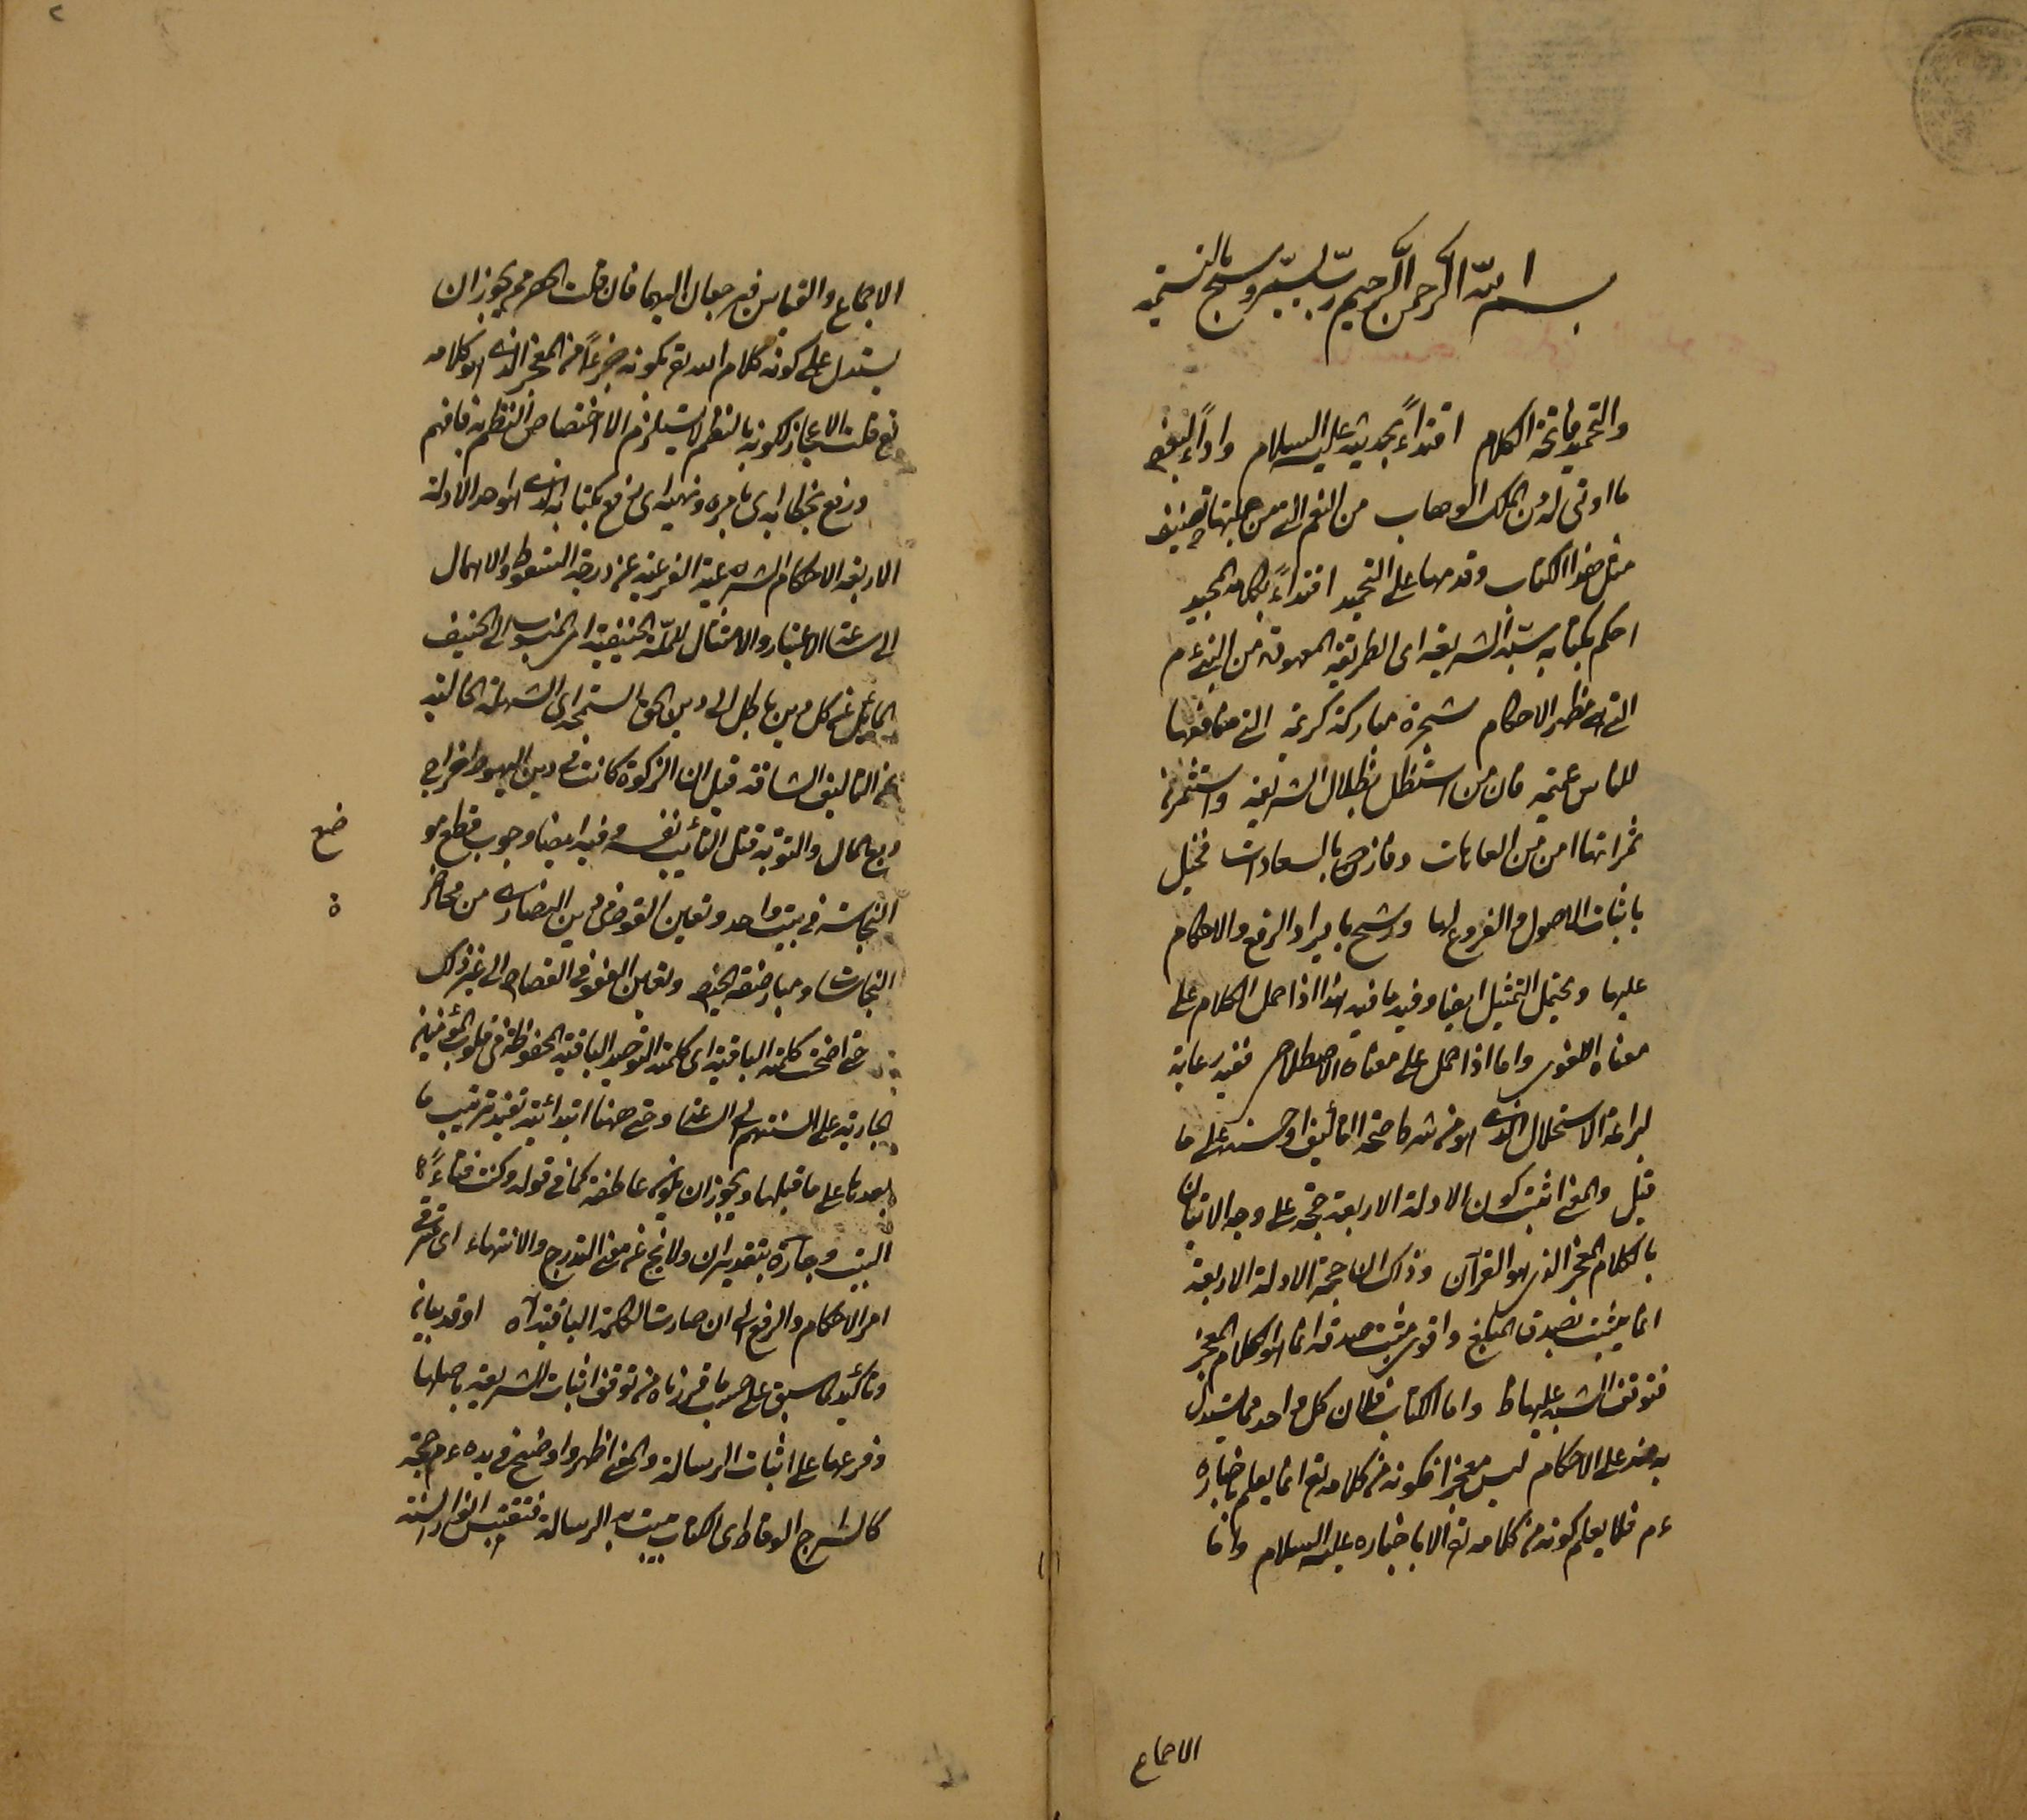 بسم الله الرحمن الرحيم رب يسر وسبح بالتسمية
والتحميد فاتحة الكلام اقتداءً بحديثه عليه السلام واداءً لبعض
ما اوتى له من الملك الوهاب من النعم التى من جملتها تصنيف
مثل هذا الكتاب وقدمها على التحميد اقتداءً بكلامه المجيد
احكم بكتابه سيّد الشريعة اى الطريقة المعهودة من النبى ءم
التى هى مظهر الاحكام شجرة مباركة كريمة التى منافعها
للناس عميمة فان من استظل بظلال الشريعة واستثمر من
ثمراتها امن من العاهات وفاز بالسعادات تخيل
باثبات الاصول والفروع لها ورشح بايراد الرفع والاحكام
عليها ويحتمل التمثيل ايضا وفيه ما فيه هذا اذا حمل الكلام على
معناه اللغوى واما اذا حمل على معناه الاصطلاحى ففيه رعاية
لبراعة الاستهلال الذى هو من شركا صنعة التأليف وحسنه على ما
قيل والمعنى اثبت كون الادلة الاربعة حجة على وجه الاتقان
بالكلام المعجز الذى هو القرآن وذلك ان حجية الادلة الاربعة
انما يثبت بصدق المبلغ واقوى مثبت صدقه انما هو الكلام المعجز
فتوقف السنة عليها ظ واما الكتاب فلان كل واحد مما يستدل
به منه على الاحكام ليس معجزا فكونه من كلامه تع انما يعلم باخباره
ءم فلا يعلم كونه من كلامه تع الا باخباره عليه السلام واما
الاجماع
الاجماع والقياس فيرجعان اليهما فان قلت الحصر مم يجوز ان
يستدل على كونه كلام الله تع بكونه جزءاً من المعجز الذى هو كلامه
تع قلت الاعجاز لكونه بالنظم لا يستلزم الا اختصاص النظم به فافهم
ورفع بخطابه اى بامره ونهيه اى رفع بكتابه الذى هو احد الادلة
الاربعة الاحكام الشرعية الفرعية عن درجة السقوط والاهمال
الى ساعة الاعتبار والامتثال للملة الحنيفية اى المنسوب الى الحنيف
المائل عن كل دين باطل الى دين الحق السمحة اى السهلة الخالية
عن التاليف الشاقة قيل ان الزكوة كانت فى دين اليهود اخراج
ربع المال والتوبة قتل التائب نفسه وفيه ايضا وجوب قطع مو
ضع
النجاسة فى بيت واحد وتعين القوض فى دين النصارى من مخاطر
ة
النجاسات ومباضعة الحيض وتعين العفو فى القصاص الى غير ذلك
حتى اضحت كلمته الباقية اى كلمة التوحيد الباقية المحفوظة فى قلوب المؤمنين
الجارية على السنتهم الى الساعة وحتى ههنا ابتدائية تفيد ترتيب ما
بعدها على ما قبلها ويجوز ان يكون عاطفة كما فى قوله وكنت فتاءً
البيت وجارة بتقدير ان ولا يخ عن معنى التدرج والانتهاء اى ترقى
امر الاحكام والرفع الى ان صارت الكلمة الباقية اه اوقد بيانا
وتأكيد لما سبق على حسب ما قررناه من توقف اثبات الشريعة باصلها
وفرعها على اثبات الرسالة والمعنى اظهر واوضح فى يده ءم حجة
كالسراج الوقاد اى الكتاب مثبت به الرسالة فتقتبس انوار السنة